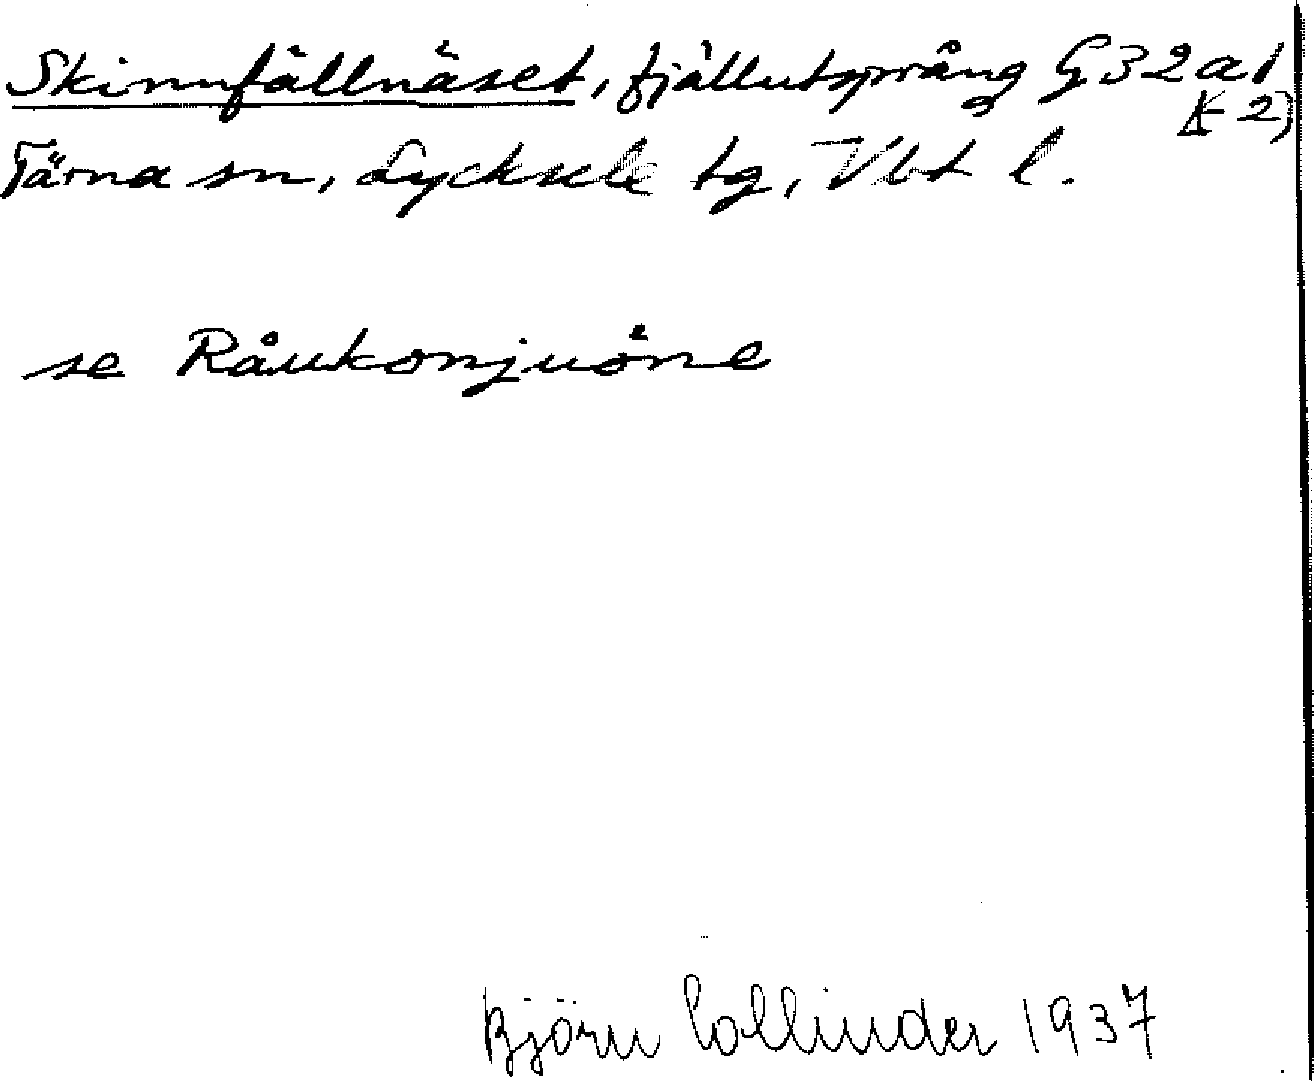 Skinnfällnäset, fjällutsprång G 32 a 1
(-2)
Tärna sn, Lycksele tg, Vbt l.
se Råukonjuöne
Björn Collinder 1937